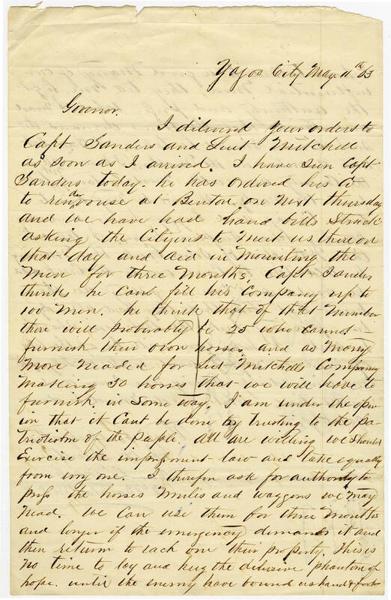 Yazoo City May 11th 63
Govenor.
I dilivered your orders to
Capt Sanders and Lieut Mitchell
as soon as I arrived. I have Seen Capt
Sanders today. he has ordered his Co
to rendvouse at Benton on next thursday
and we have had hand bills Struck
asking the Citizens to Meet us there on
that day and aid in Mounting the
Men for three Months, Capt Sanders
think he Can fill his Company up to
100 Men. he think that of that Number
there will proberably be 25 who Cannot
furnish their own horses and as Many
More Neaded for Lieut Mitchells Company
Making 50 horses that we will have to
furnish in Some way. I am under the opin
ion that it Cant be done by trusting to the pa-
triotism of the People. All are willing we Should
Exercise the impressment law and take equally
from evry one. I therefore ask for authority to
press the horses Mules and waggons we may
Nead. we Can use them for three Months
and longer if the emergency demands it and
then return to each one their property. This is
No time to lay and hug the delusive phantom of
hope. until the enemy have bound us hand & foot